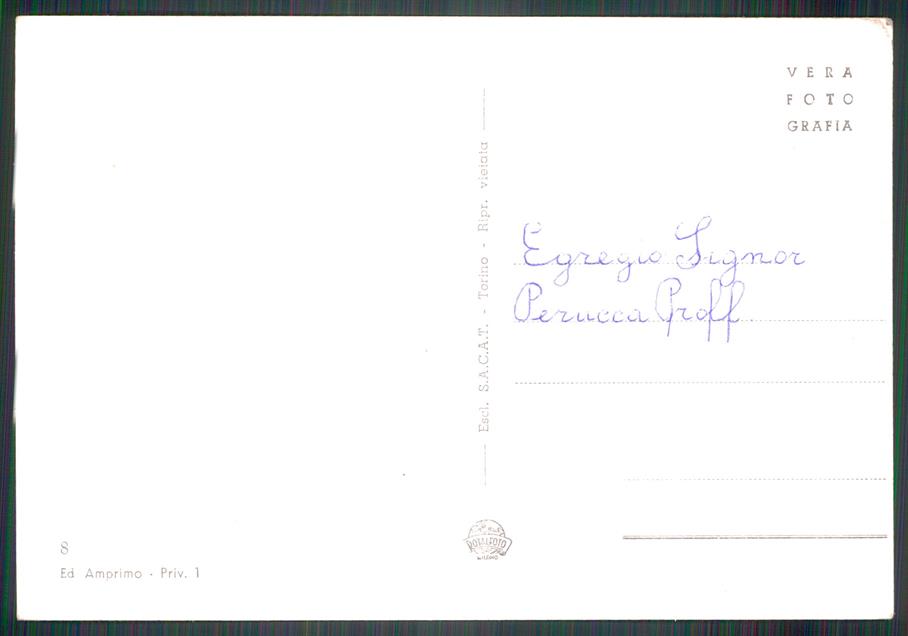 VERA
FOTO
GRAFIA
Egregio Signor
Perucca Proff
Escl. S.A.C.A.T. - Torino - Ripr. vietata
ROTALFOTO
MILANO
8
Ed Amprimo - Priv. 1